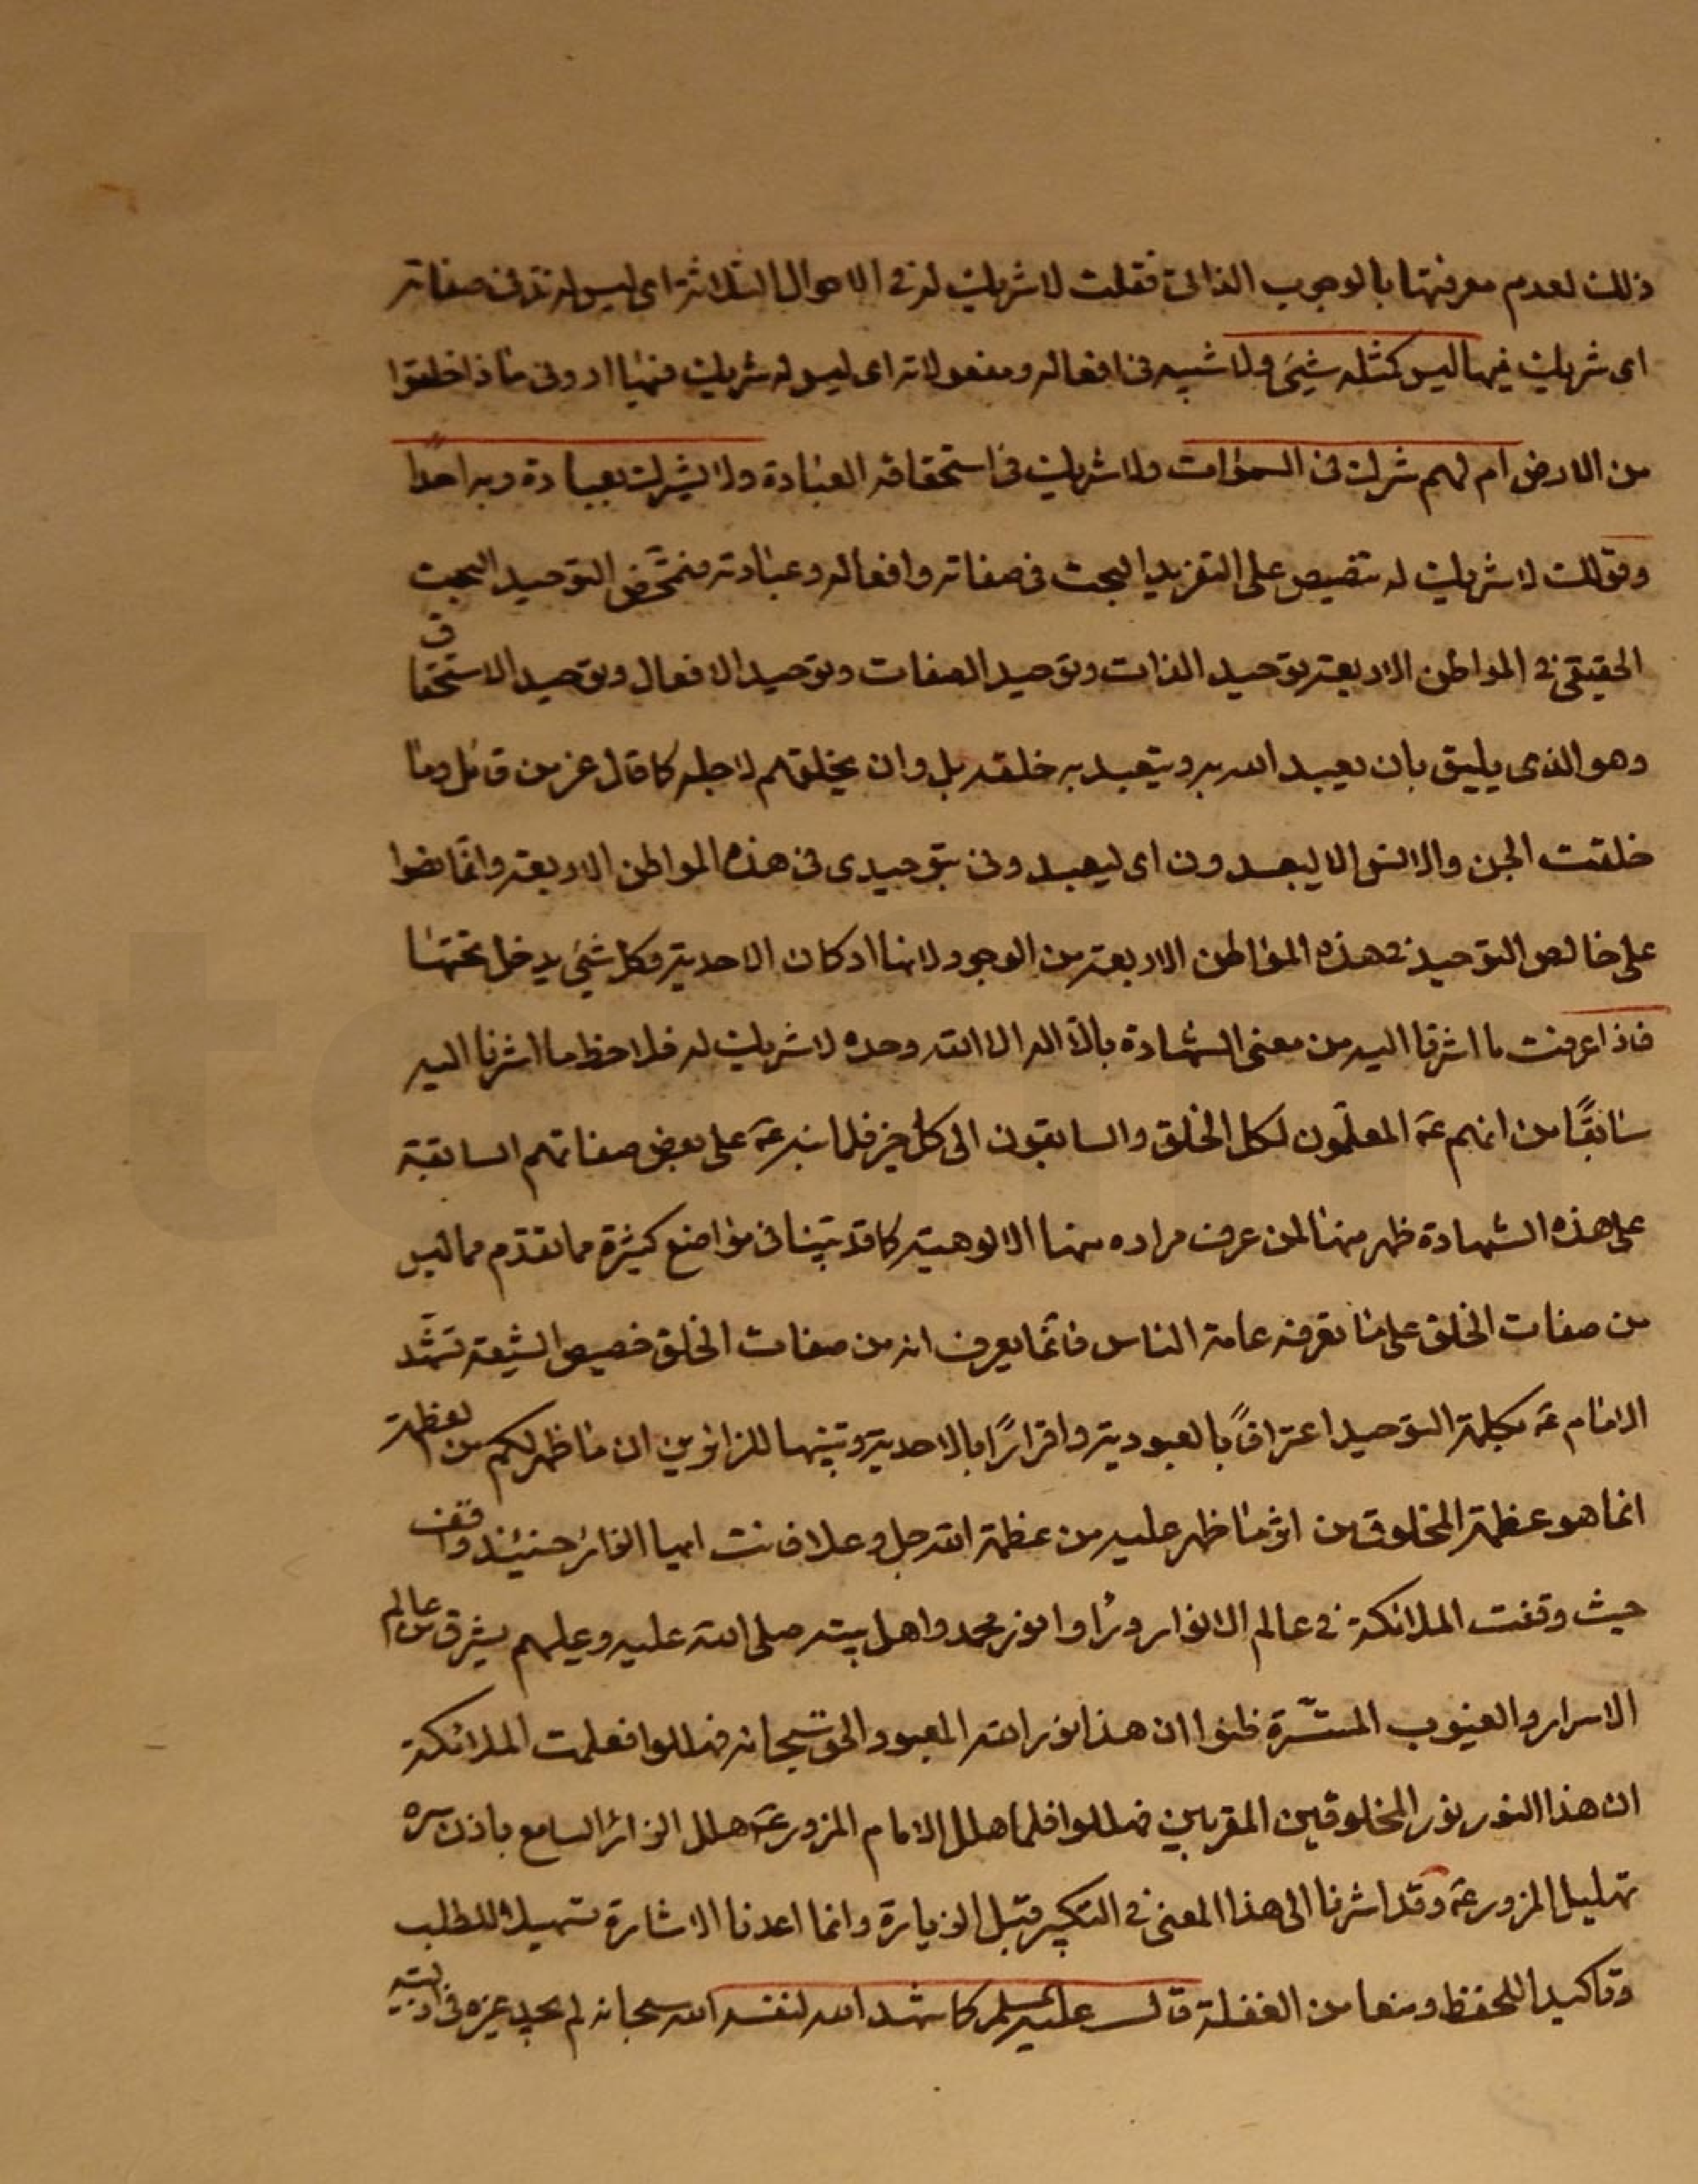 ذلك لعدم معرفتها بالوجوب الذاتي فقلت لا شريك له في الاحوال الثلاثة اى ليس له ند في صفاته
اى شريك فيها ليس كمثله شيئ ولا شبيه في افعاله ومفعولاته اى ليس له شريك فيها اروني ماذا خلقوا
من الارض ام لهم شرك في السموات ولا شريك في استحقاقه العبادة ولا يشرك بعبادة ربه احدا
وقولك لا شريك له تنصيص على التفريد البحت في صفاته وافعاله وعبادته فتمحض التوحيد البحت
الحقيقي في المواطن الاربعة توحيد الذات وتوحيد الصفات وتوحيد الافعال وتوحيد الاستحقاق
وهو الذى يليق بان يعبد الله به ويتعبد به خلقه بل وان يخلقهم لاجله كما قال عز من قائل وما
خلقت الجن والانس الا ليعبدون اى ليعبدوني بتوحيدى في هذه المواطن الاربعة وانما نصوا
على خالص التوحيد في هذه المواطن الاربعة من الوجود لانها اركان الاحدية وكل شيئ يدخل تحتها
فاذا عرفت ما اشرنا اليه من معنى الشهادة بالا اله الا الله وحده لا شريك له فلاحظ ما اشرنا اليه
سابقًا من انهم عۤ المعلّمون لكل الخلق والسابقون الى كل خير فلما نبه عۤ على بعض صفاتهم السابقة
على هذه الشهادة ظهر منها لمن عرف مراده منها الالوهية كما قد بينا في مواضع كثيرة مما تقدم مما ليس
من صفات الخلق على ما تعرفه عامة الناس فانما يعرف انه من صفات الخلق خصيص الشيعة تشهّد
الامام عۤ بكلمة التوحيد اعترافًا بالعبودية واقرارًا بالاحدية وتبيّنها للزائرين ان ما ظهر لكم من لعظمة
انما هو عظمة المخلوق من اثر ما ظهر عليه من عظمة الله جل وعلا فانت ايها الزائر حينئذ واقف
حيث وقفت الملائكة في عالم الانوار ورأوا نور محمد واهل بيته صلى الله عليه وعليهم يشرق من عالم
الاسرار والغيوب المستّرة ظنوا ان هذا نور الله المعبود الحق سبحانه فهللوا فعلمت الملائكة
ان هذا النور نور المخلوقين المقربين فهللوا فلما هلل الامام المزور عۤ هلل الزائر السامع باذن سره
تهليل المزور عۤ وقد اشرنا الى هذا المعنى في التكبير قبل الزيارة وانما اعدنا الاشارة تسهيلا للطلب
وتاكيدا للحفظ ومنعا من الغفلة قال عليه السلم كما شهد الله لنفسه الله سبحانه لم يجد غيره في